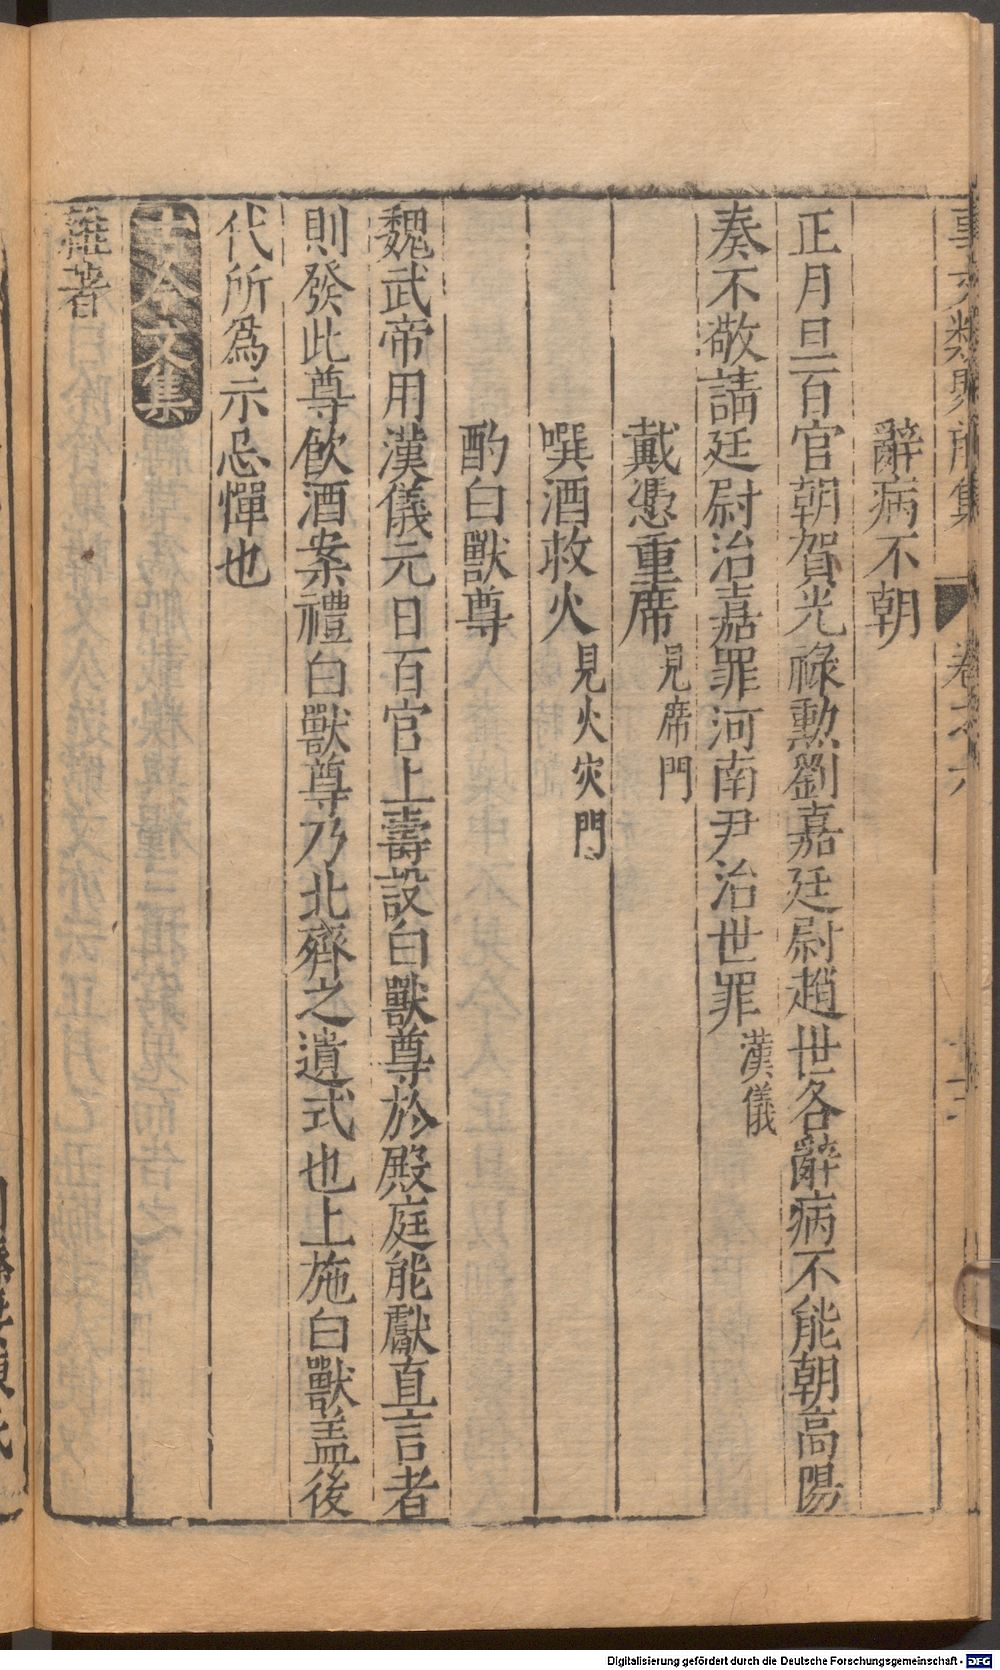 事文類聚前集 卷之六
辭病不朝
正月旦百官朝賀光祿勲劉嘉廷尉趙世各辭病不能朝高陽
奏不敬請廷尉治嘉罪河南尹治世罪漢儀
戴憑重席見席門
噀酒救火見火灾門
酌白獸尊
魏武帝用漢儀元日百官上壽設白獸尊於殿庭能獻直言者
則發此尊飲酒案禮白獸尊乃北齊之遺式也上施白獸盖後
代所爲示忌憚也
古今文集
雜著
Digitalisierung gefördert durch die Deutsche Forschungsgemeinschaft - DFG